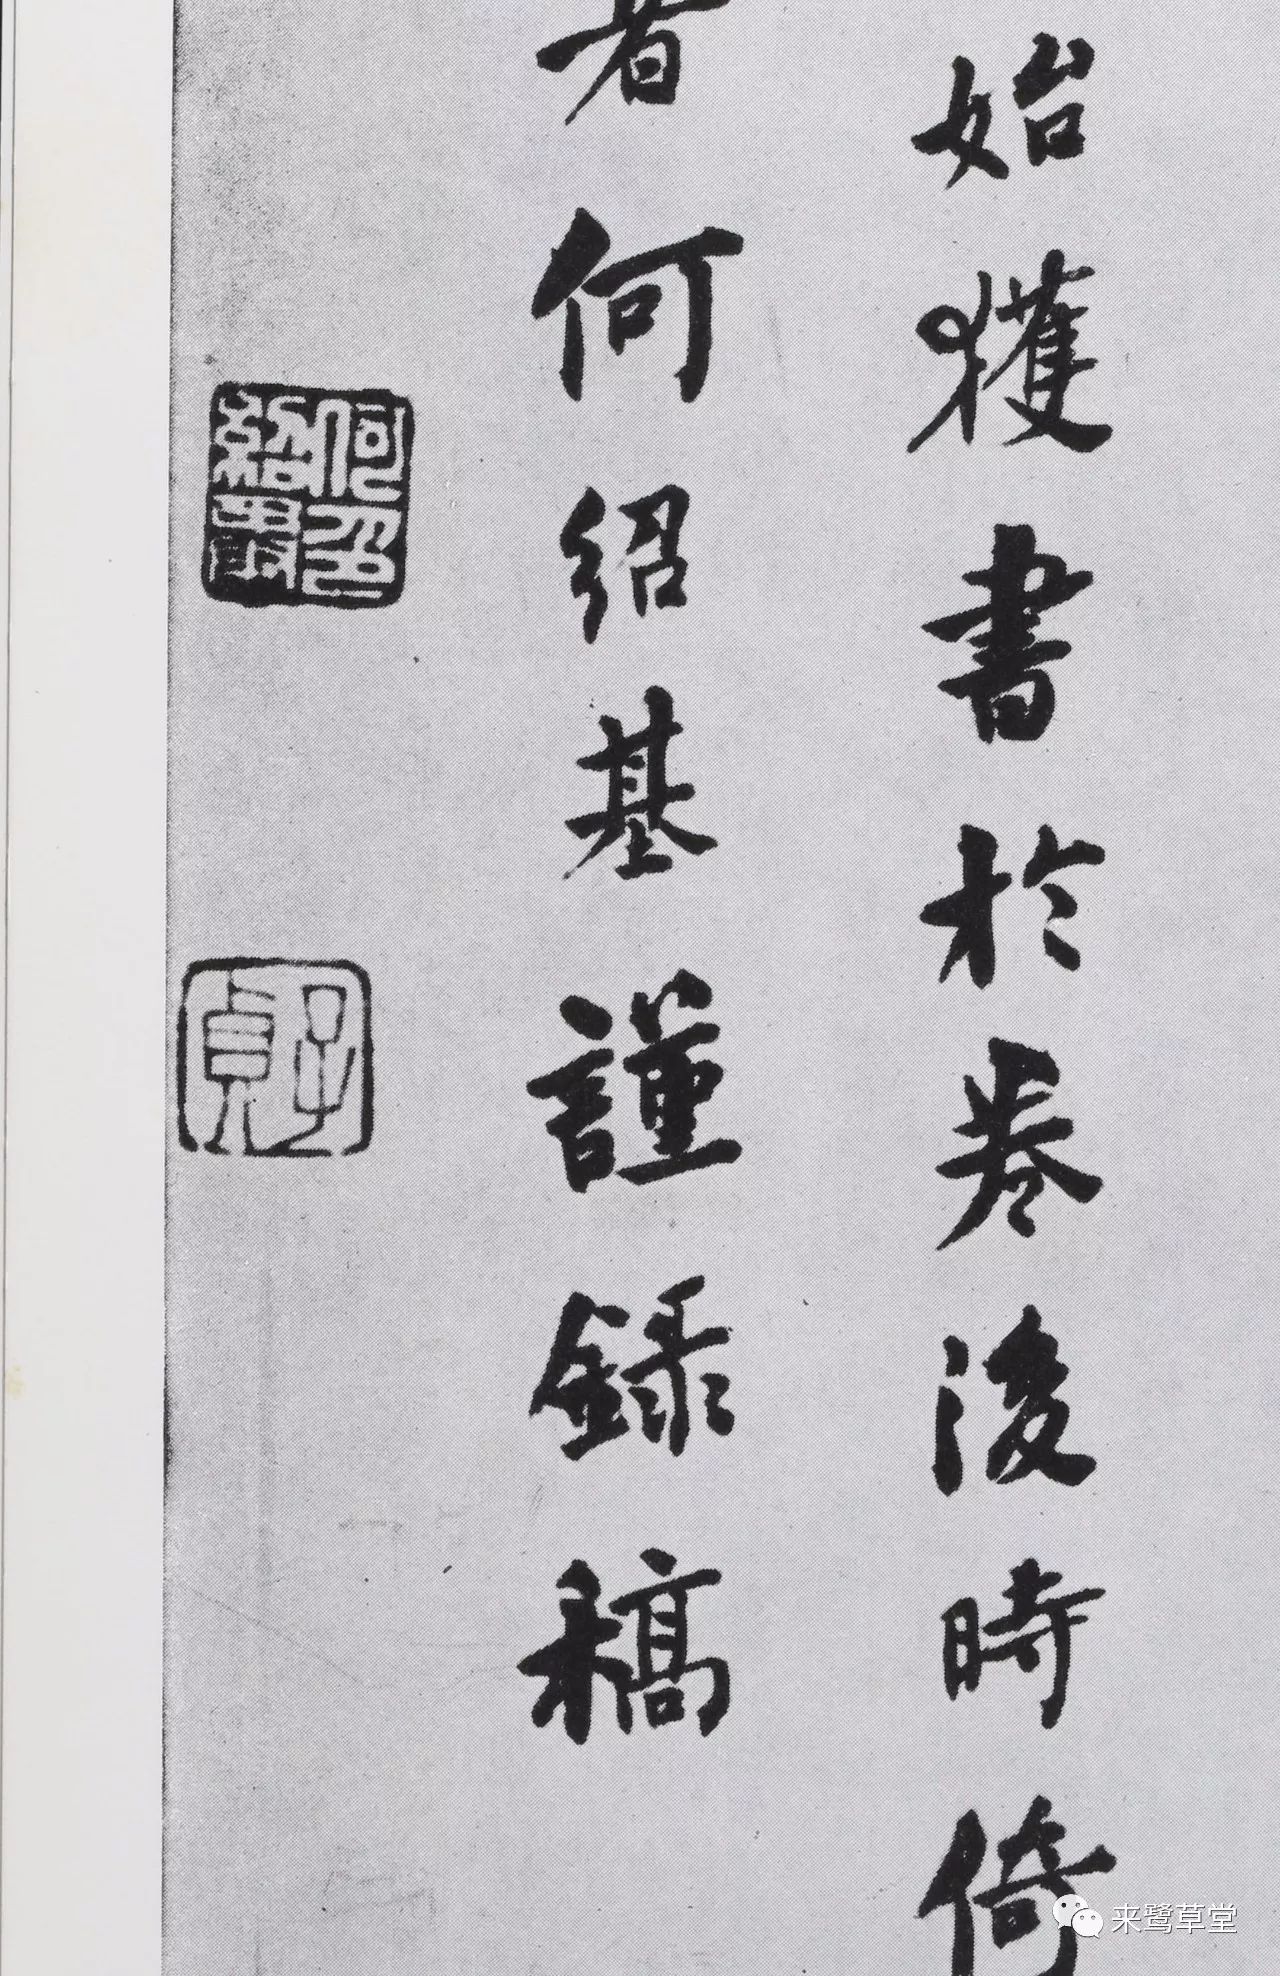 始獲書於卷後時倚
者何紹基謹録稿
何紹基印
子貞
来鹭草堂